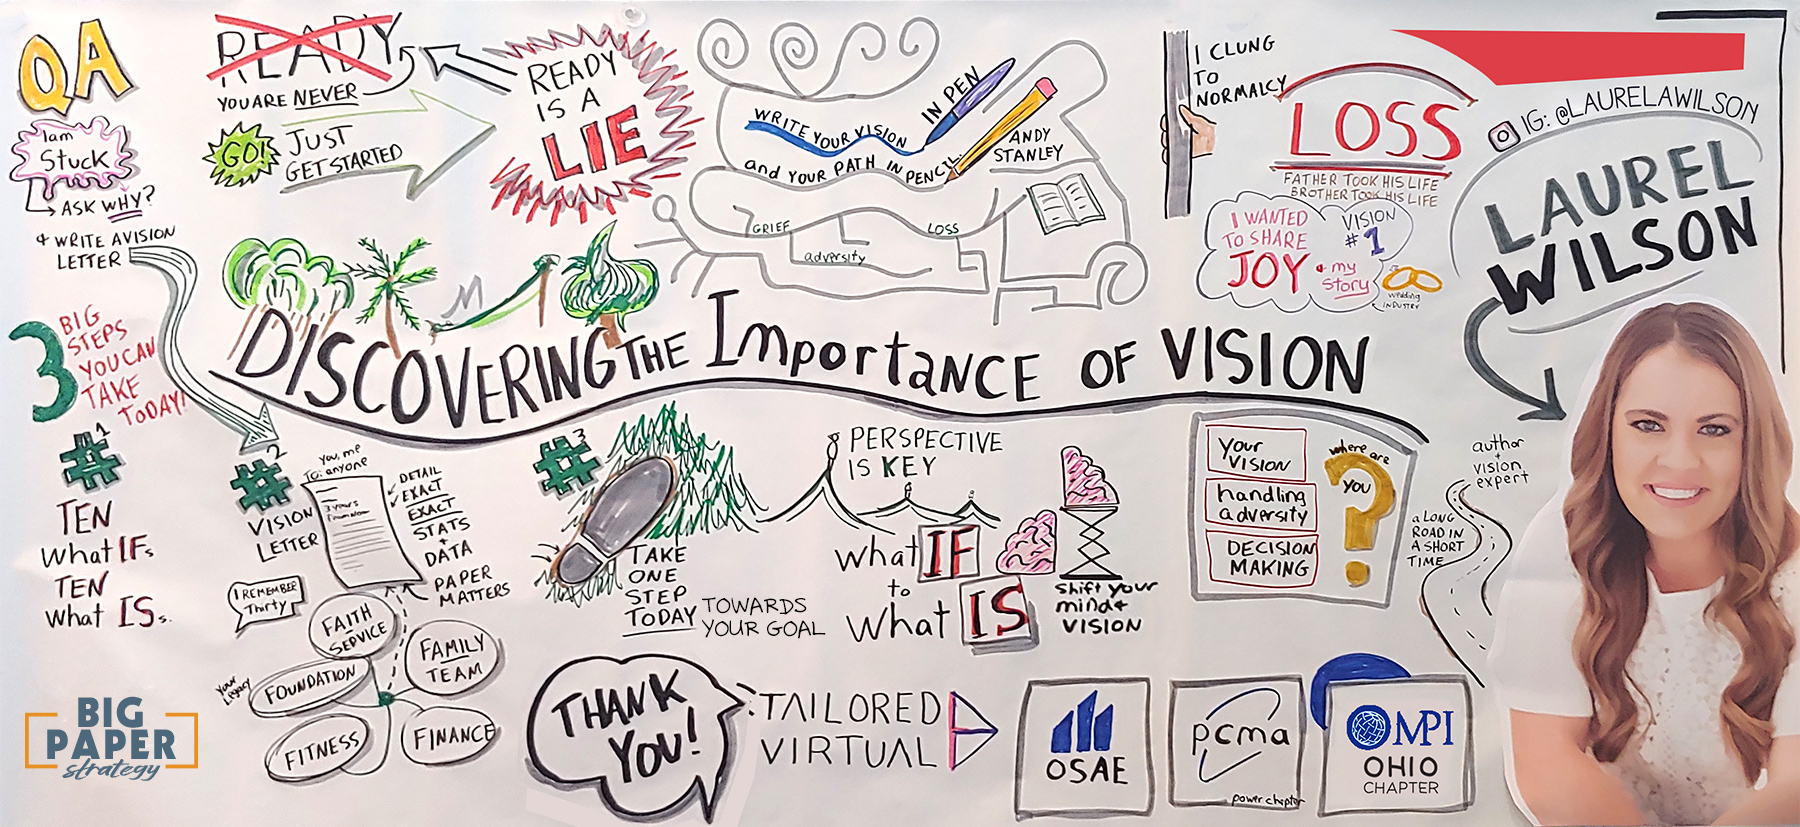 QA
I am
Stuck
ASK WHY?
+ WRITE A VISION
LETTER
READY
YOU ARE NEVER
GO!
JUST
GET STARTED
READY
IS A
LIE
WRITE YOUR VISION
IN PEN
and YOUR PATH IN PENCIL.
ANDY
STANLEY
GRIEF
LOSS
adversity
I CLUNG
TO
NORMALCY
LOSS
FATHER TOOK HIS LIFE
BROTHER TOOK HIS LIFE
I WANTED
TO SHARE
JOY
+ my
story
VISION
#1
wedding
INDUSTRY
IG: @LAURELAWILSON
LAUREL
WILSON
DISCOVERING THE Importance OF VISION
3
BIG
STEPS
YOU CAN
TAKE
TODAY!
#1
TEN
What IFs
TEN
What ISs.
#2
VISION
LETTER
To: you, me
anyone
3 years
from now
DETAIL
EXACT
EXACT
STATS
+
DATA
PAPER
MATTERS
I REMEMBER
Thirty
FAITH
SERVICE
FAMILY
TEAM
FOUNDATION
your
Legacy
FITNESS
FINANCE
#3
TAKE
ONE
STEP
TODAY
TOWARDS
YOUR GOAL
PERSPECTIVE
IS KEY
what IF
to
what IS
shift your
mind +
VISION
Your
VISION
handling
adversity
DECISION
MAKING
where are
YOU
?
author
+
vision
expert
a LONG
ROAD IN
A SHORT
TIME
BIG
PAPER
strategy
THANK
YOU!
TAILORED
VIRTUAL
OSAE
pcma
power chapter
MPI
OHIO
CHAPTER